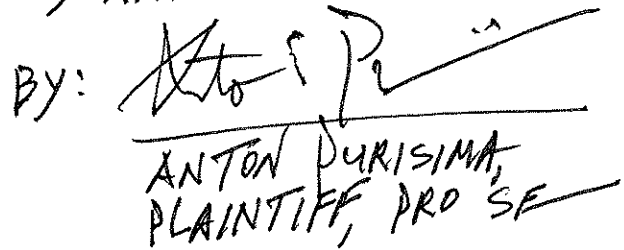 BY:
ANTON PURISIMA,
PLAINTIFF, PRO SE